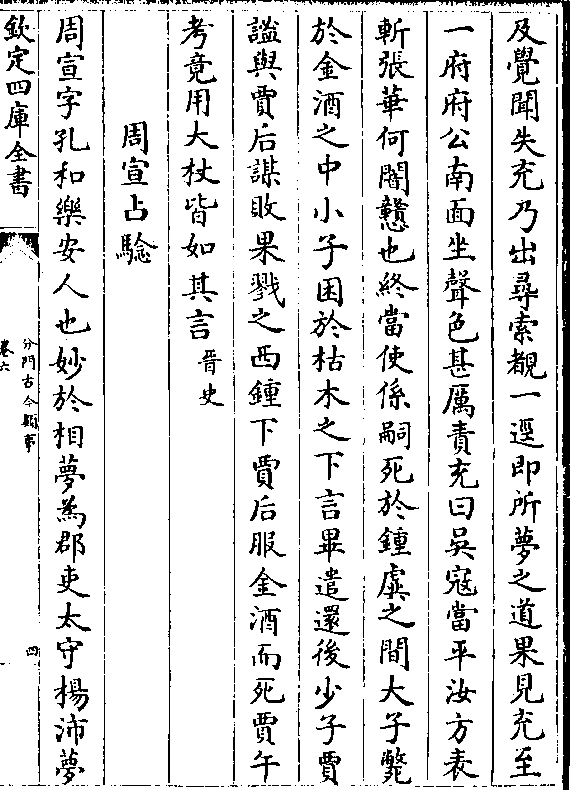 及覺聞失充乃出尋索覩一逕即所夢之道果見充至
一府府公南面坐聲色甚厲責充曰吳寇當平汝方表
斬張華何闇戇也終當使係嗣死於鍾虡之間大子斃
於金酒之中小子困於枯木之下言畢遣還後少子賈
謐與賈后謀敗果戮之西鍾下賈后服金酒而死賈午
考竟用大杖皆如其言晉史
周宣占驗
周宣字孔和樂安人也妙於相夢為郡吏太守楊沛夢
欽定四庫全書
分門古今類事
卷六
四